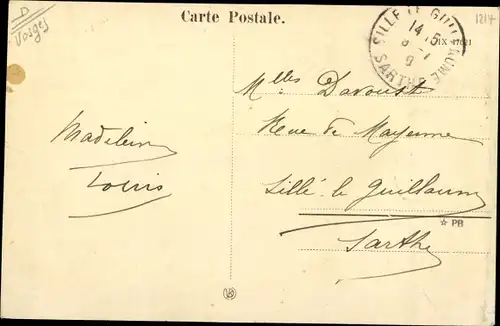 D
Vosges
Carte Postale.
1214
SILLE LE GUILLAUME
14 15
SARTHE
Mlles Davoust
Rue de Mayenne
Sillé le Guillaume
☆ PB
Sarthe
Madeleine
Louis